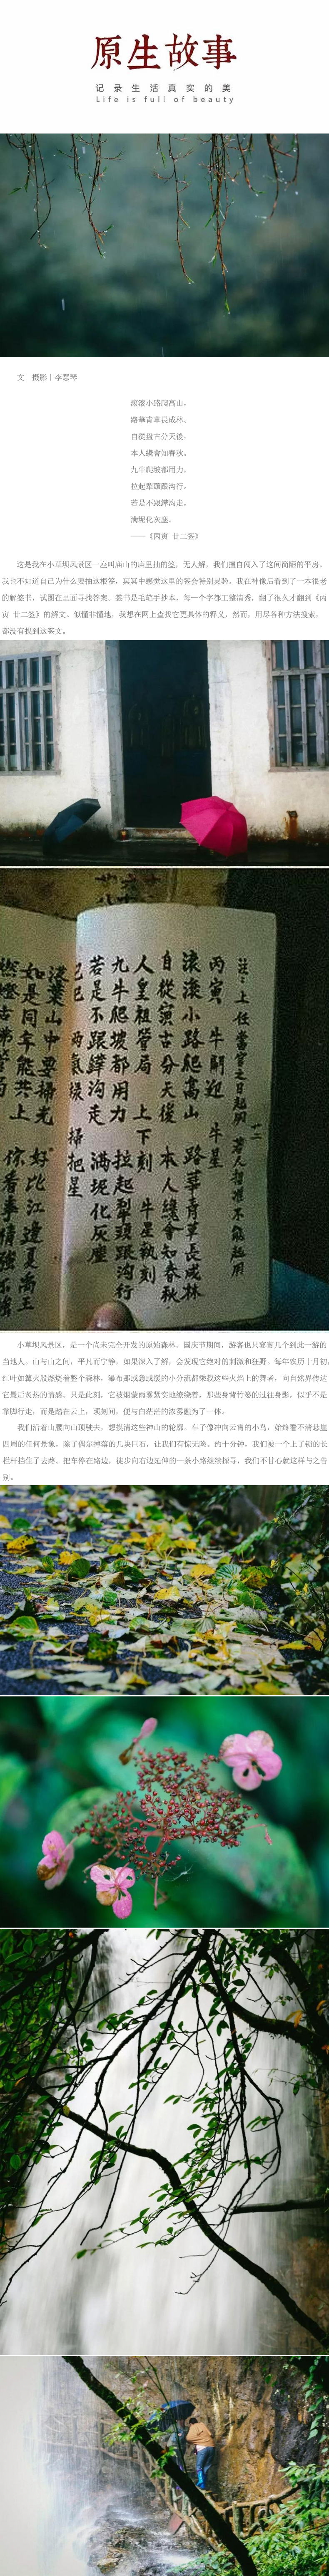 原生故事
记录生活真实的美
Life is full of beauty
文　摄影丨李慧琴
滚滚小路爬高山。
路華青草長成林。
自從盘古分天後，
本人纔會知春秋。
九牛爬坡都用力，
拉起犁頭跟沟行。
若是不跟鏵沟走，
满坭化灰塵。
——《丙寅 廿二签》
这是我在小草坝风景区一座叫庙山的庙里抽的签，无人解，我们擅自闯入了这间简陋的平房，
我也不知道自己为什么要抽这根签，冥冥中感觉这里的签会特别灵验。我在神像后看到了一本很老
的解签书，试图在里面寻找答案。签书是毛笔手抄本，每一个字都工整清秀，翻了很久才翻到《丙
寅 廿二签》的解文。似懂非懂地，我想在网上查找它更具体的释义，然而，用尽各种方法搜索，
都没有找到这签文。
注：上任當官之日起用 若人搭准不能起用
丙寅 牛闘迎 牛星 廿二
滚滚小路爬高山 路華青草長成林
自從演古分天後 本人纔會知春秋
人皇祖管局 上下刻 牛星執刻
九牛爬坡都用力 拉起犁頭跟沟行
若是不跟鏵沟走 满坭化灰塵
小草坝风景区，是一个尚未完全开发的原始森林。国庆节期间，游客也只寥寥几个到此一游的
当地人。山与山之间，平凡而宁静，如果深入了解，会发现它绝对的刺激和狂野。每年农历十月初，
红叶如篝火般燃烧着整个森林，瀑布那或急或缓的分流都乘载这些火焰上的舞者，向自然界传达
它最后炙热的情感。只是此刻，它被烟蒙雨雾紧实地缭绕着，那些身背竹篓的过往身影，似乎不是
靠脚行走，而是踏在云上，顷刻间，便与白茫茫的浓雾融为了一体。
我们沿着山腰向山顶驶去，想摸清这些神山的轮廓。车子像冲向云霄的小鸟，始终看不清悬崖
四周的任何景象，除了偶尔掉落的几块巨石，让我们有惊无险。约十分钟，我们被一个上了锁的长
栏杆挡住了去路。把车停在路边，徒步向右边延伸的一条小路继续探寻，我们不甘心就这样与之告
别。